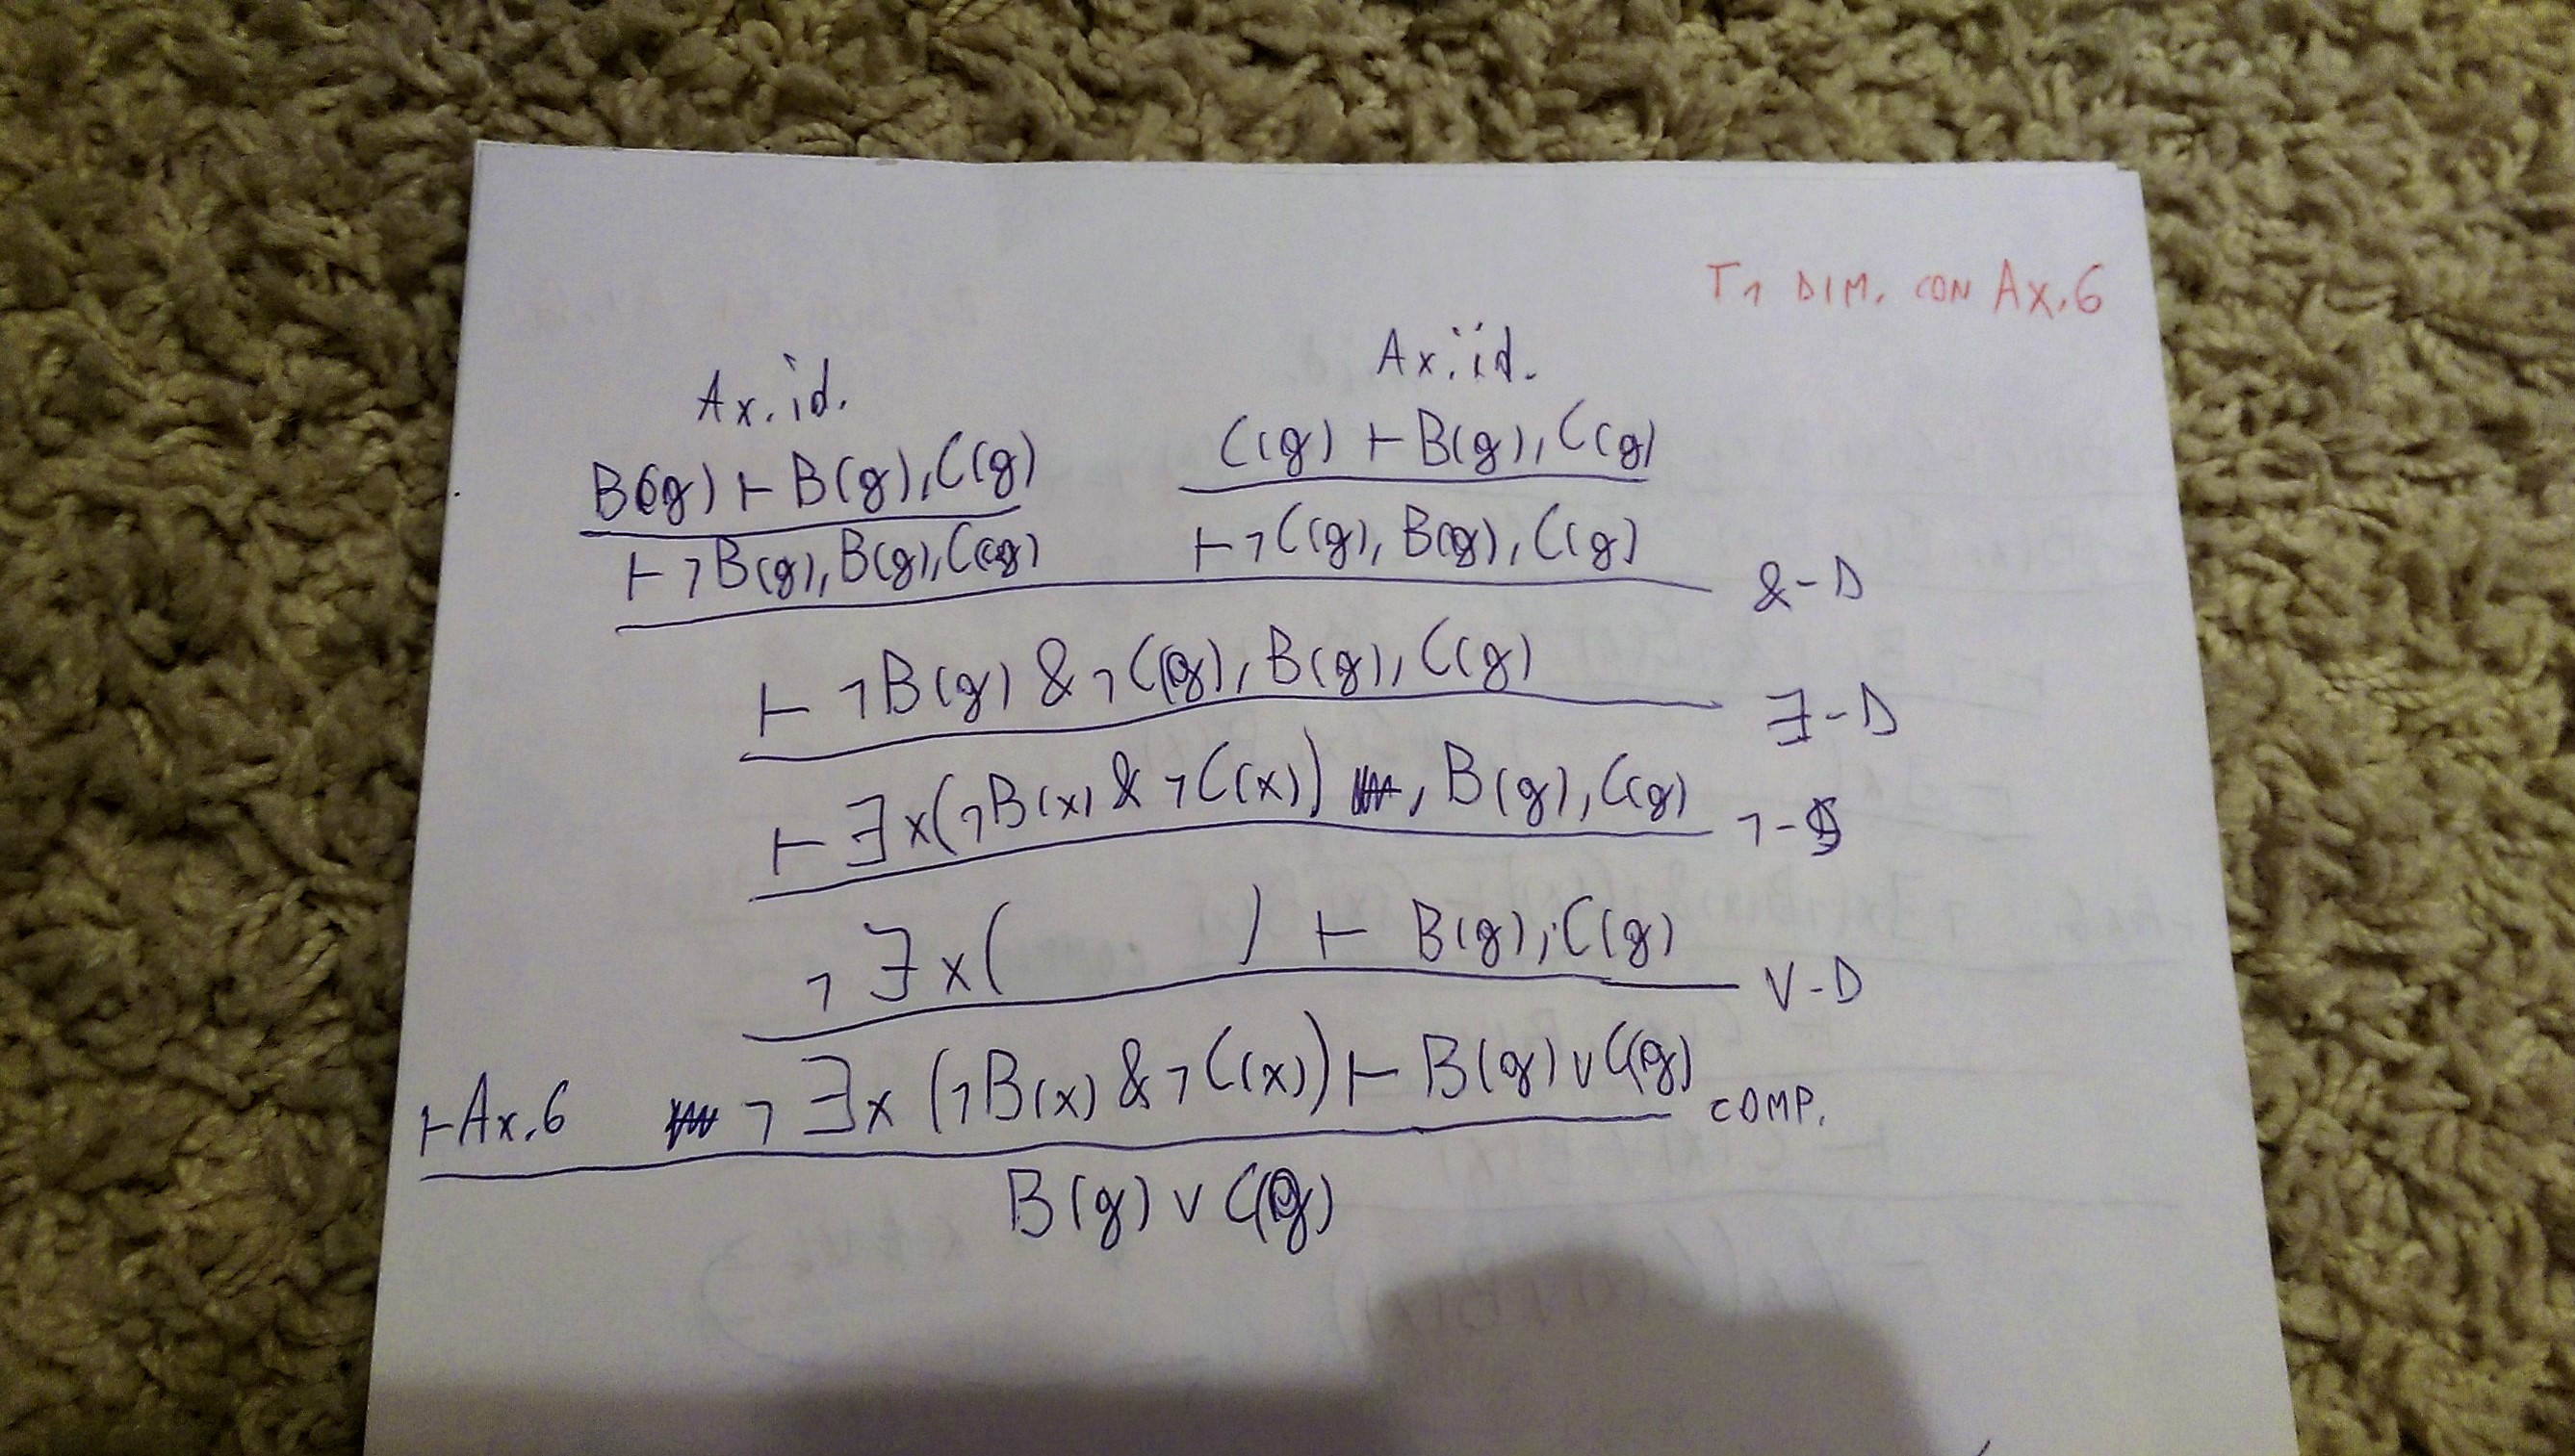 T1 DIM. CON AX.6
Ax.id. Ax.id.
B(g) ⊢ B(g), C(g) C(g) ⊢ B(g), C(g)
⊢ ¬B(g), B(g), C(g) ⊢ ¬C(g), B(g), C(g) &-D
⊢ ¬B(g) & ¬C(g), B(g), C(g) ∃-D
⊢ ∃x(¬B(x) & ¬C(x)) , B(g), C(g) ¬-S
¬∃x( ) ⊢ B(g), C(g) V-D
⊢Ax.6 ¬∃x (¬B(x) & ¬C(x)) ⊢ B(g) ∨ C(g) COMP.
B(g) ∨ C(g)